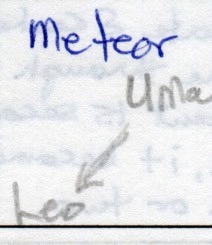 Meteor
UMa
Leo